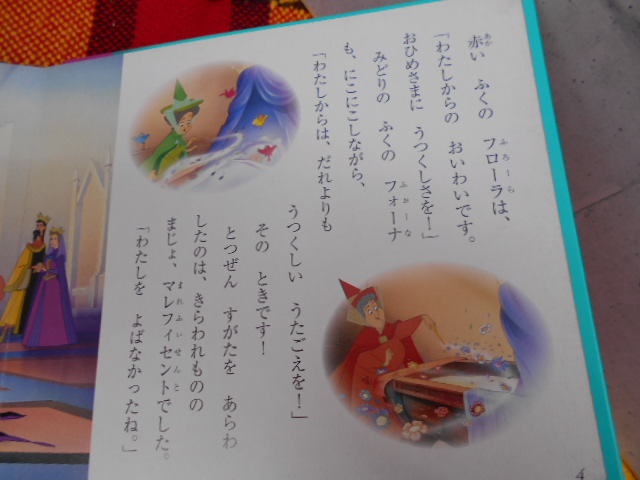 赤い ふくの フローラは、
「わたしからの おいわいです。
おひめさまに うつくしさを!」
みどりの ふくの フォーナ
も、にこにこしながら、
「わたしからは、だれよりも
うつくしい うたごえを!」
その ときです!
とつぜん すがたを あらわ
したのは、きらわれものの
まじょ、マレフィセントでした。
「わたしを よばなかったね。」
4